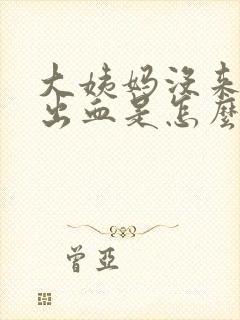 大姨妈没来
出血是怎麼
曾亚